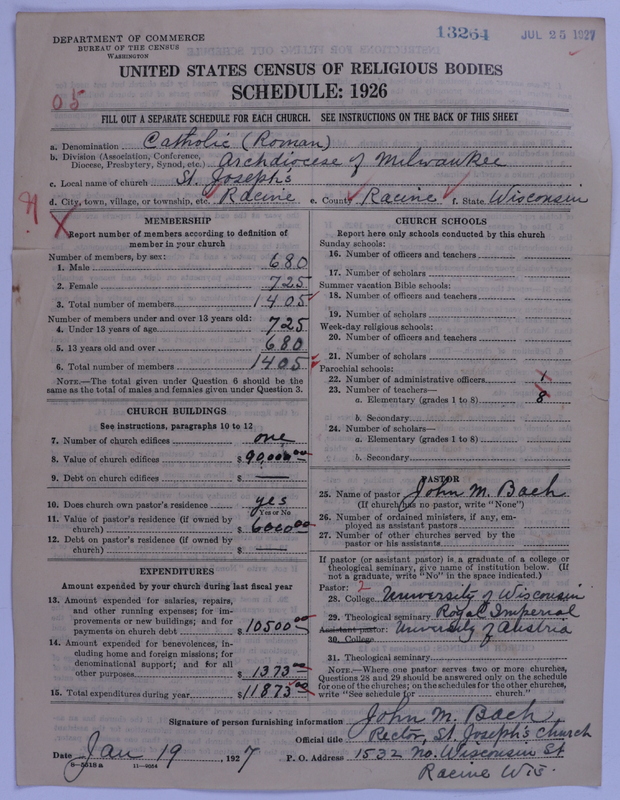 13264 JUL 25 1927
DEPARTMENT OF COMMERCE
BUREAU OF THE CENSUS
WASHINGTON
UNITED STATES CENSUS OF RELIGIOUS BODIES
SCHEDULE: 1926
05
FILL OUT A SEPARATE SCHEDULE FOR EACH CHURCH. SEE INSTRUCTIONS ON THE BACK OF THIS SHEET
a. Denomination Catholic (Roman)
b. Division (Association, Conference,
Diocese, Presbytery, Synod, etc.) Archdiocese of Milwaukee
c. Local name of church St. Joseph's
d. City, town, village, or township, etc. Racine e. County Racine f. State Wisconsin
MEMBERSHIP
Report number of members according to definition of
member in your church
Number of members, by sex:
1. Male 680
2. Female 725
3. Total number of members 1405
Number of members under and over 13 years old:
4. Under 13 years of age 725
5. 13 years old and over 680
6. Total number of members 1405
NOTE.—The total given under Question 6 should be the
same as the total of males and females given under Question 3.
CHURCH BUILDINGS
See instructions, paragraphs 10 to 12
7. Number of church edifices one
8. Value of church edifices $90,000 00
9. Debt on church edifices $ —
10. Does church own pastor's residence yes
Yes or No
11. Value of pastor's residence (if owned by
church) $6000 00
12. Debt on pastor's residence (if owned by
church) $ —
EXPENDITURES
Amount expended by your church during last fiscal year
13. Amount expended for salaries, repairs,
and other running expenses; for im-
provements or new buildings; and for
payments on church debt $10500 00
14. Amount expended for benevolences, in-
cluding home and foreign missions; for
denominational support; and for all
other purposes $1373 00
15. Total expenditures during year $11873 00
CHURCH SCHOOLS
Report here only schools conducted by this church
Sunday schools:
16. Number of officers and teachers
17. Number of scholars
Summer vacation Bible schools:
18. Number of officers and teachers
19. Number of scholars
Week-day religious schools:
20. Number of officers and teachers
21. Number of scholars
Parochial schools:
22. Number of administrative officers
23. Number of teachers—
a. Elementary (grades 1 to 8) 8
b. Secondary
24. Number of scholars—
a. Elementary (grades 1 to 8)
b. Secondary
PASTOR
25. Name of pastor John M. Bach
(If church has no pastor, write "None")
26. Number of ordained ministers, if any, em-
ployed as assistant pastors
27. Number of other churches served by the
pastor or his assistants
If pastor (or assistant pastor) is a graduate of a college or
theological seminary, give name of institution below. (If
not a graduate, write "No" in the space indicated.)
Pastor: 2
28. College University of Wisconsin
29. Theological seminary Royal Imperial
Assistant pastor: University of Austria
30. College
31. Theological seminary
NOTE.—Where one pastor serves two or more churches,
Questions 28 and 29 should be answered only on the schedule
for one of the churches; on the schedules for the other churches,
write "See schedule for church."
Signature of person furnishing information John M. Bach
Official title Rector, St. Joseph's Church
Date Jan 19, 1927 P. O. Address 1532 No. Wisconsin St
8—5518 a 11—9054 Racine Wis.